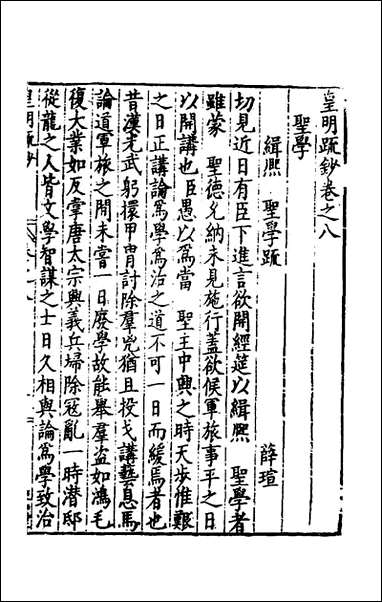 皇明疏鈔卷之八
聖學
緝熙 聖學疏 薛瑄
切見近日有臣下進言欲開經筵以緝熙 聖學者
雖蒙 聖德允納未見施行蓋欲候軍旅事平之日
以開講也臣愚以爲當 聖主中興之時天步惟艱
之日正講論爲學爲治之道不可一日而緩焉者也
昔漢光武躬擐甲冑討除羣兇猶且投戈講藝息馬
論道軍旅之間未嘗一日廢學故能舉羣盗如鴻毛
復大業如反掌唐太宗興義兵埽除冦亂一時潜邸
從龍之人皆文學智謀之士日久相與論爲學致治
皇明疏鈔